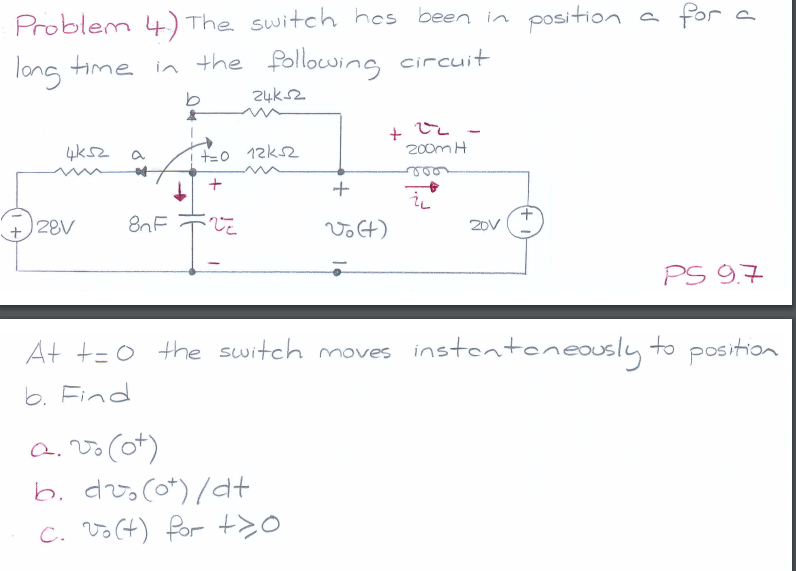 Problem 4.) The switch has been in position a for a
long time in the following circuit
b 24kΩ
+ vL -
4kΩ a t=0 12kΩ 200mH
+ + iL
- + 28V 8nF vc vo(t) 20V + -
- -
PS 9.7
At t=0 the switch moves instantaneously to position
b. Find
a. vo(0+)
b. dvo(0+)/dt
c. vo(t) for t≥0